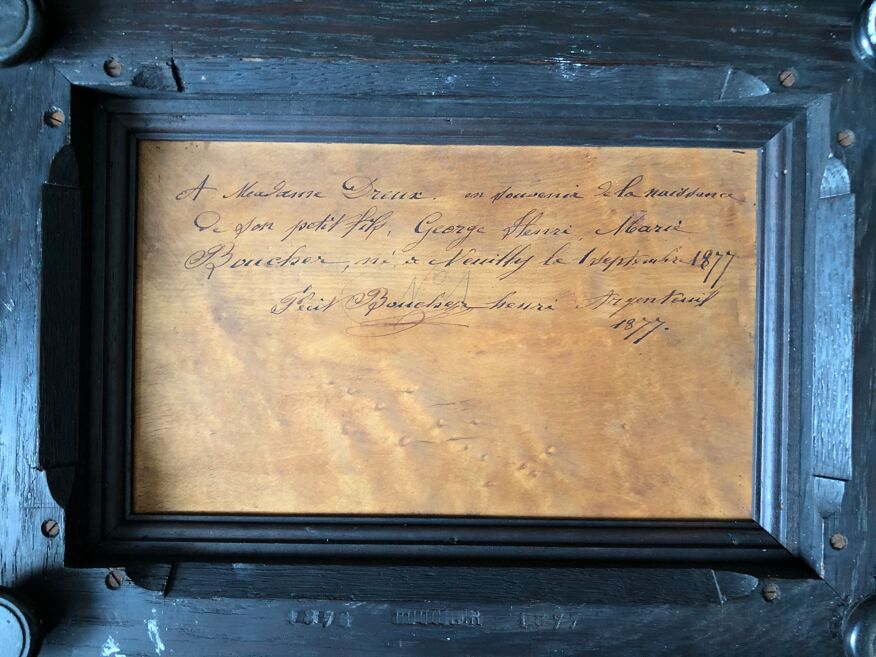 A Madame Dreux. en souvenir de la naissance
de son petit fils, George Henri, Marie
Boucher, né à Neuilly le 1 septembre 1877
Boucher henri Argenteuil
1877.
1877